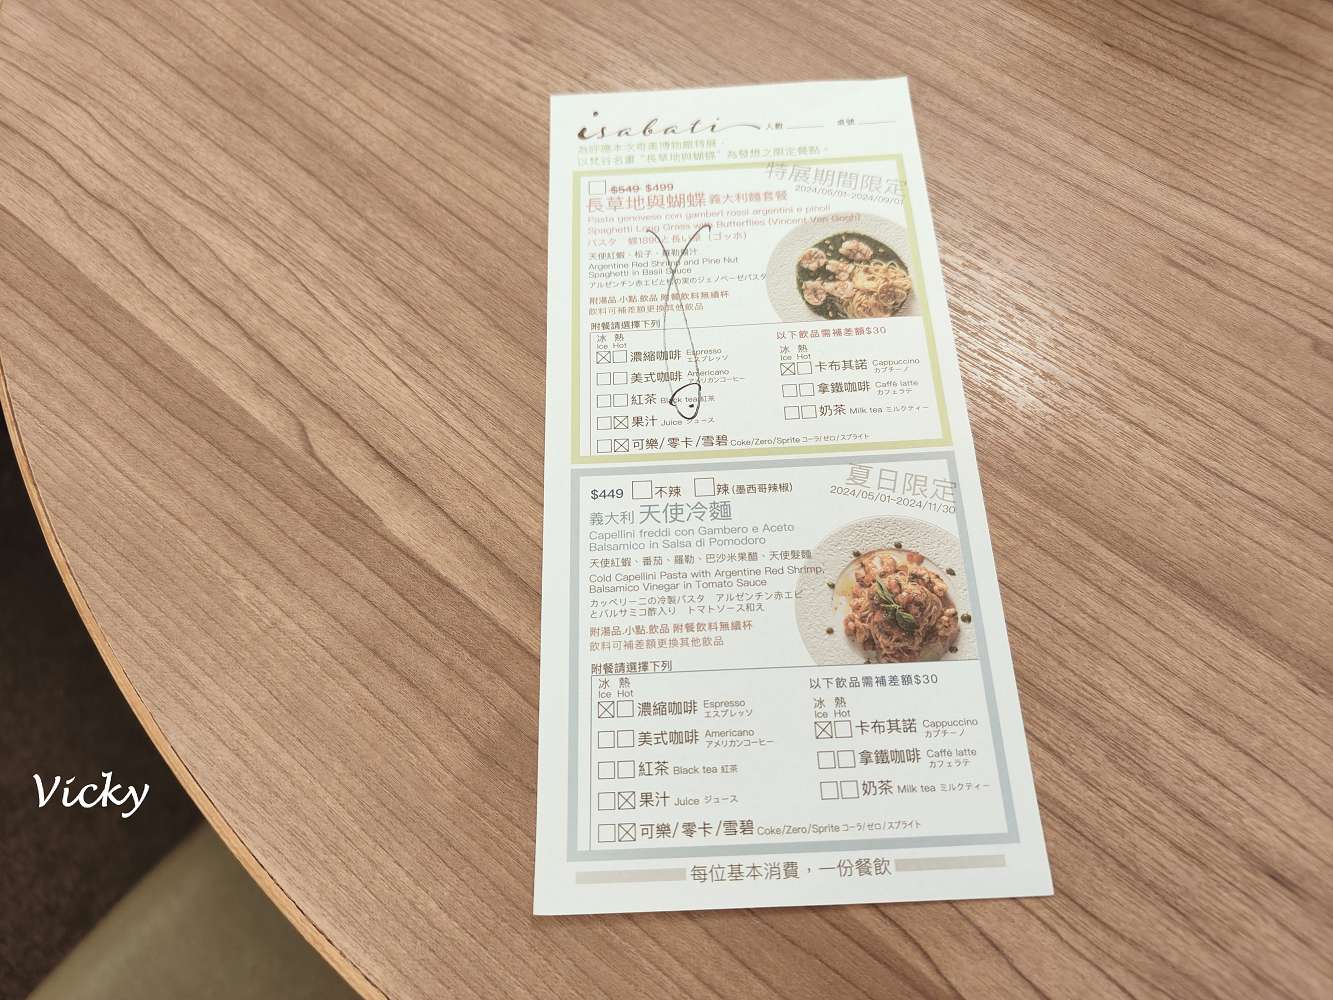 isabati 人數 桌號
為呼應本次奇美博物館特展，
以梵谷名畫“長草地與蝴蝶”為發想之限定餐點。
特展期間限定
2024/05/01-2024/09/01
$549 $499
長草地與蝴蝶 義大利麵套餐
Pasta genovese con gamberi rossi argentini e pinoli
Spaghetti Long Grass with Butterflies (Vincent Van Gogh)
パスタ 蝶1890と長い草 (ゴッホ)
天使紅蝦、松子、羅勒醬汁
Argentine Red Shrimp and Pine Nut
Spaghetti in Basil Sauce
アルゼンチン赤エビと松の実のジェノベーゼパスタ
附湯品.小點.飲品 附餐飲料無續杯
飲料可補差額更換其他飲品
附餐請選擇下列
冰 熱
Ice Hot
濃縮咖啡 Espresso エスプレッソ
美式咖啡 Americano アメリカンコーヒー
紅茶 Black tea 紅茶
果汁 Juice ジュース
可樂/零卡/雪碧 Coke/Zero/Sprite コーラ/ゼロ/スプライト
以下飲品需補差額$30
冰 熱
Ice Hot
卡布其諾 Cappuccino カプチーノ
拿鐵咖啡 Caffè latte カフェラテ
奶茶 Milk tea ミルクティー
夏日限定
2024/05/01-2024/11/30
$449 不辣 辣(墨西哥辣椒)
義大利 天使冷麵
Capellini freddi con Gambero e Aceto
Balsamico in Salsa di Pomodoro
天使紅蝦、番茄、羅勒、巴沙米果醋、天使髮麵
Cold Capellini Pasta with Argentine Red Shrimp,
Balsamic Vinegar in Tomato Sauce
カッペリーニの冷製パスタ アルゼンチン赤エビ
とバルサミコ酢入り トマトソース和え
附湯品.小點.飲品 附餐飲料無續杯
飲料可補差額更換其他飲品
附餐請選擇下列
冰 熱
Ice Hot
濃縮咖啡 Espresso エスプレッソ
美式咖啡 Americano アメリカンコーヒー
紅茶 Black tea 紅茶
果汁 Juice ジュース
可樂/零卡/雪碧 Coke/Zero/Sprite コーラ/ゼロ/スプライト
以下飲品需補差額$30
冰 熱
Ice Hot
卡布其諾 Cappuccino カプチーノ
拿鐵咖啡 Caffè latte カフェラテ
奶茶 Milk tea ミルクティー
每位基本消費，一份餐飲
Vicky